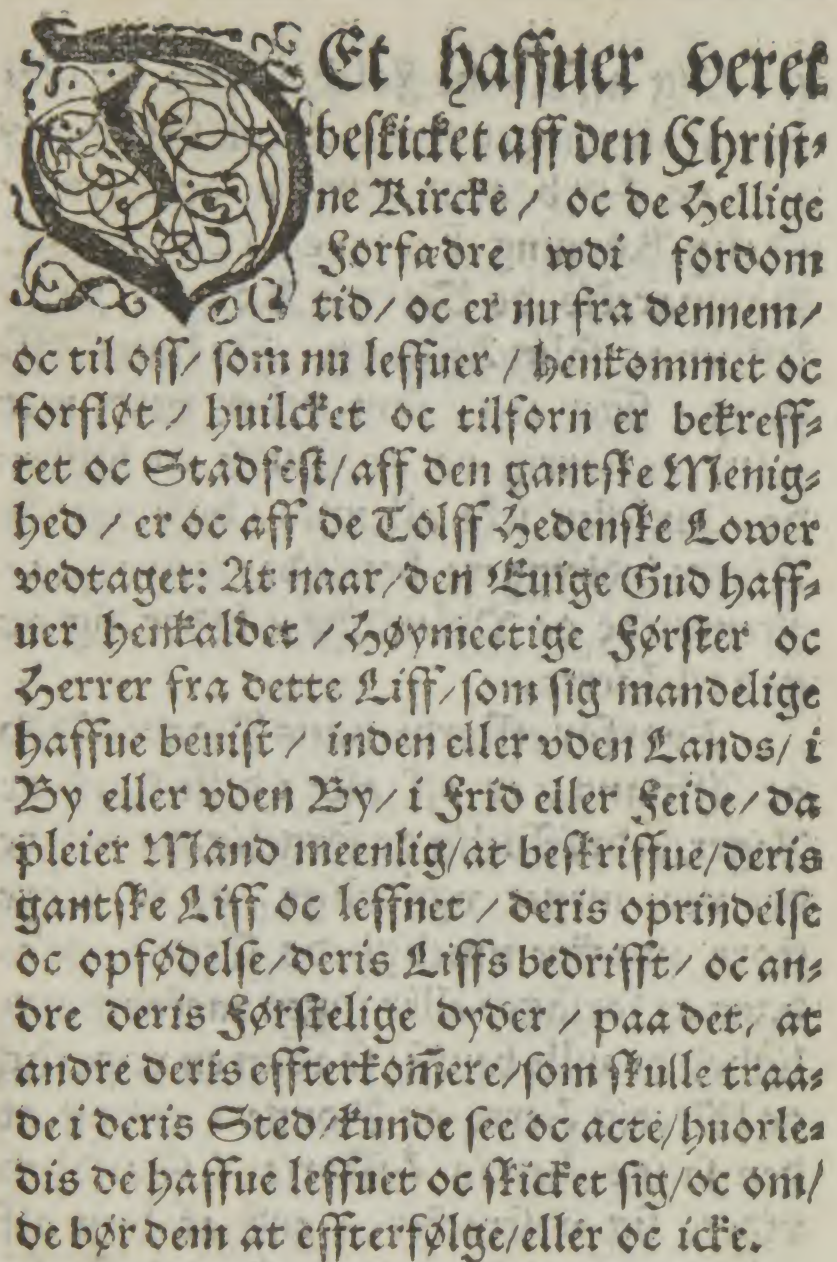 DEt haffuer veret
beskicket aff den Christ⸗
ne Kircke / oc de Hellige
Forfædre wdi fordom
tid / oc er nu fra dennem /
oc til oss / som nu leffuer / henkommet oc
forfløt / huilcket oc tilforn er bekreff⸗
tet oc Stadfest / aff den gantske Menig⸗
hed / er oc aff de Tolff Hedenske Lower
vedtaget: At naar / den Euige Gud haff⸗
uer henkaldet / HøymectigeFørster oc
Herrer fra dette Liff / som sig mandelige
haffue beuist / inden eller vden Lands / i
By eller vden By / i Frid eller Feide / da
pleier Mand meenlig / at beskriffue / deris
gantske Liff oc leffnet / deris oprindelse
oc opfødelse / deris Liffs bedrifft / oc an⸗
dre deris Førstelige dyder / paa det, at
andre deris effterkom̃ere / som skulle traa⸗
de i deris Sted / kunde see oc acte / huorle⸗
dis de haffue leffuet oc skicket sig / oc om /
de bør dem at effterfølge / eller oc icke.